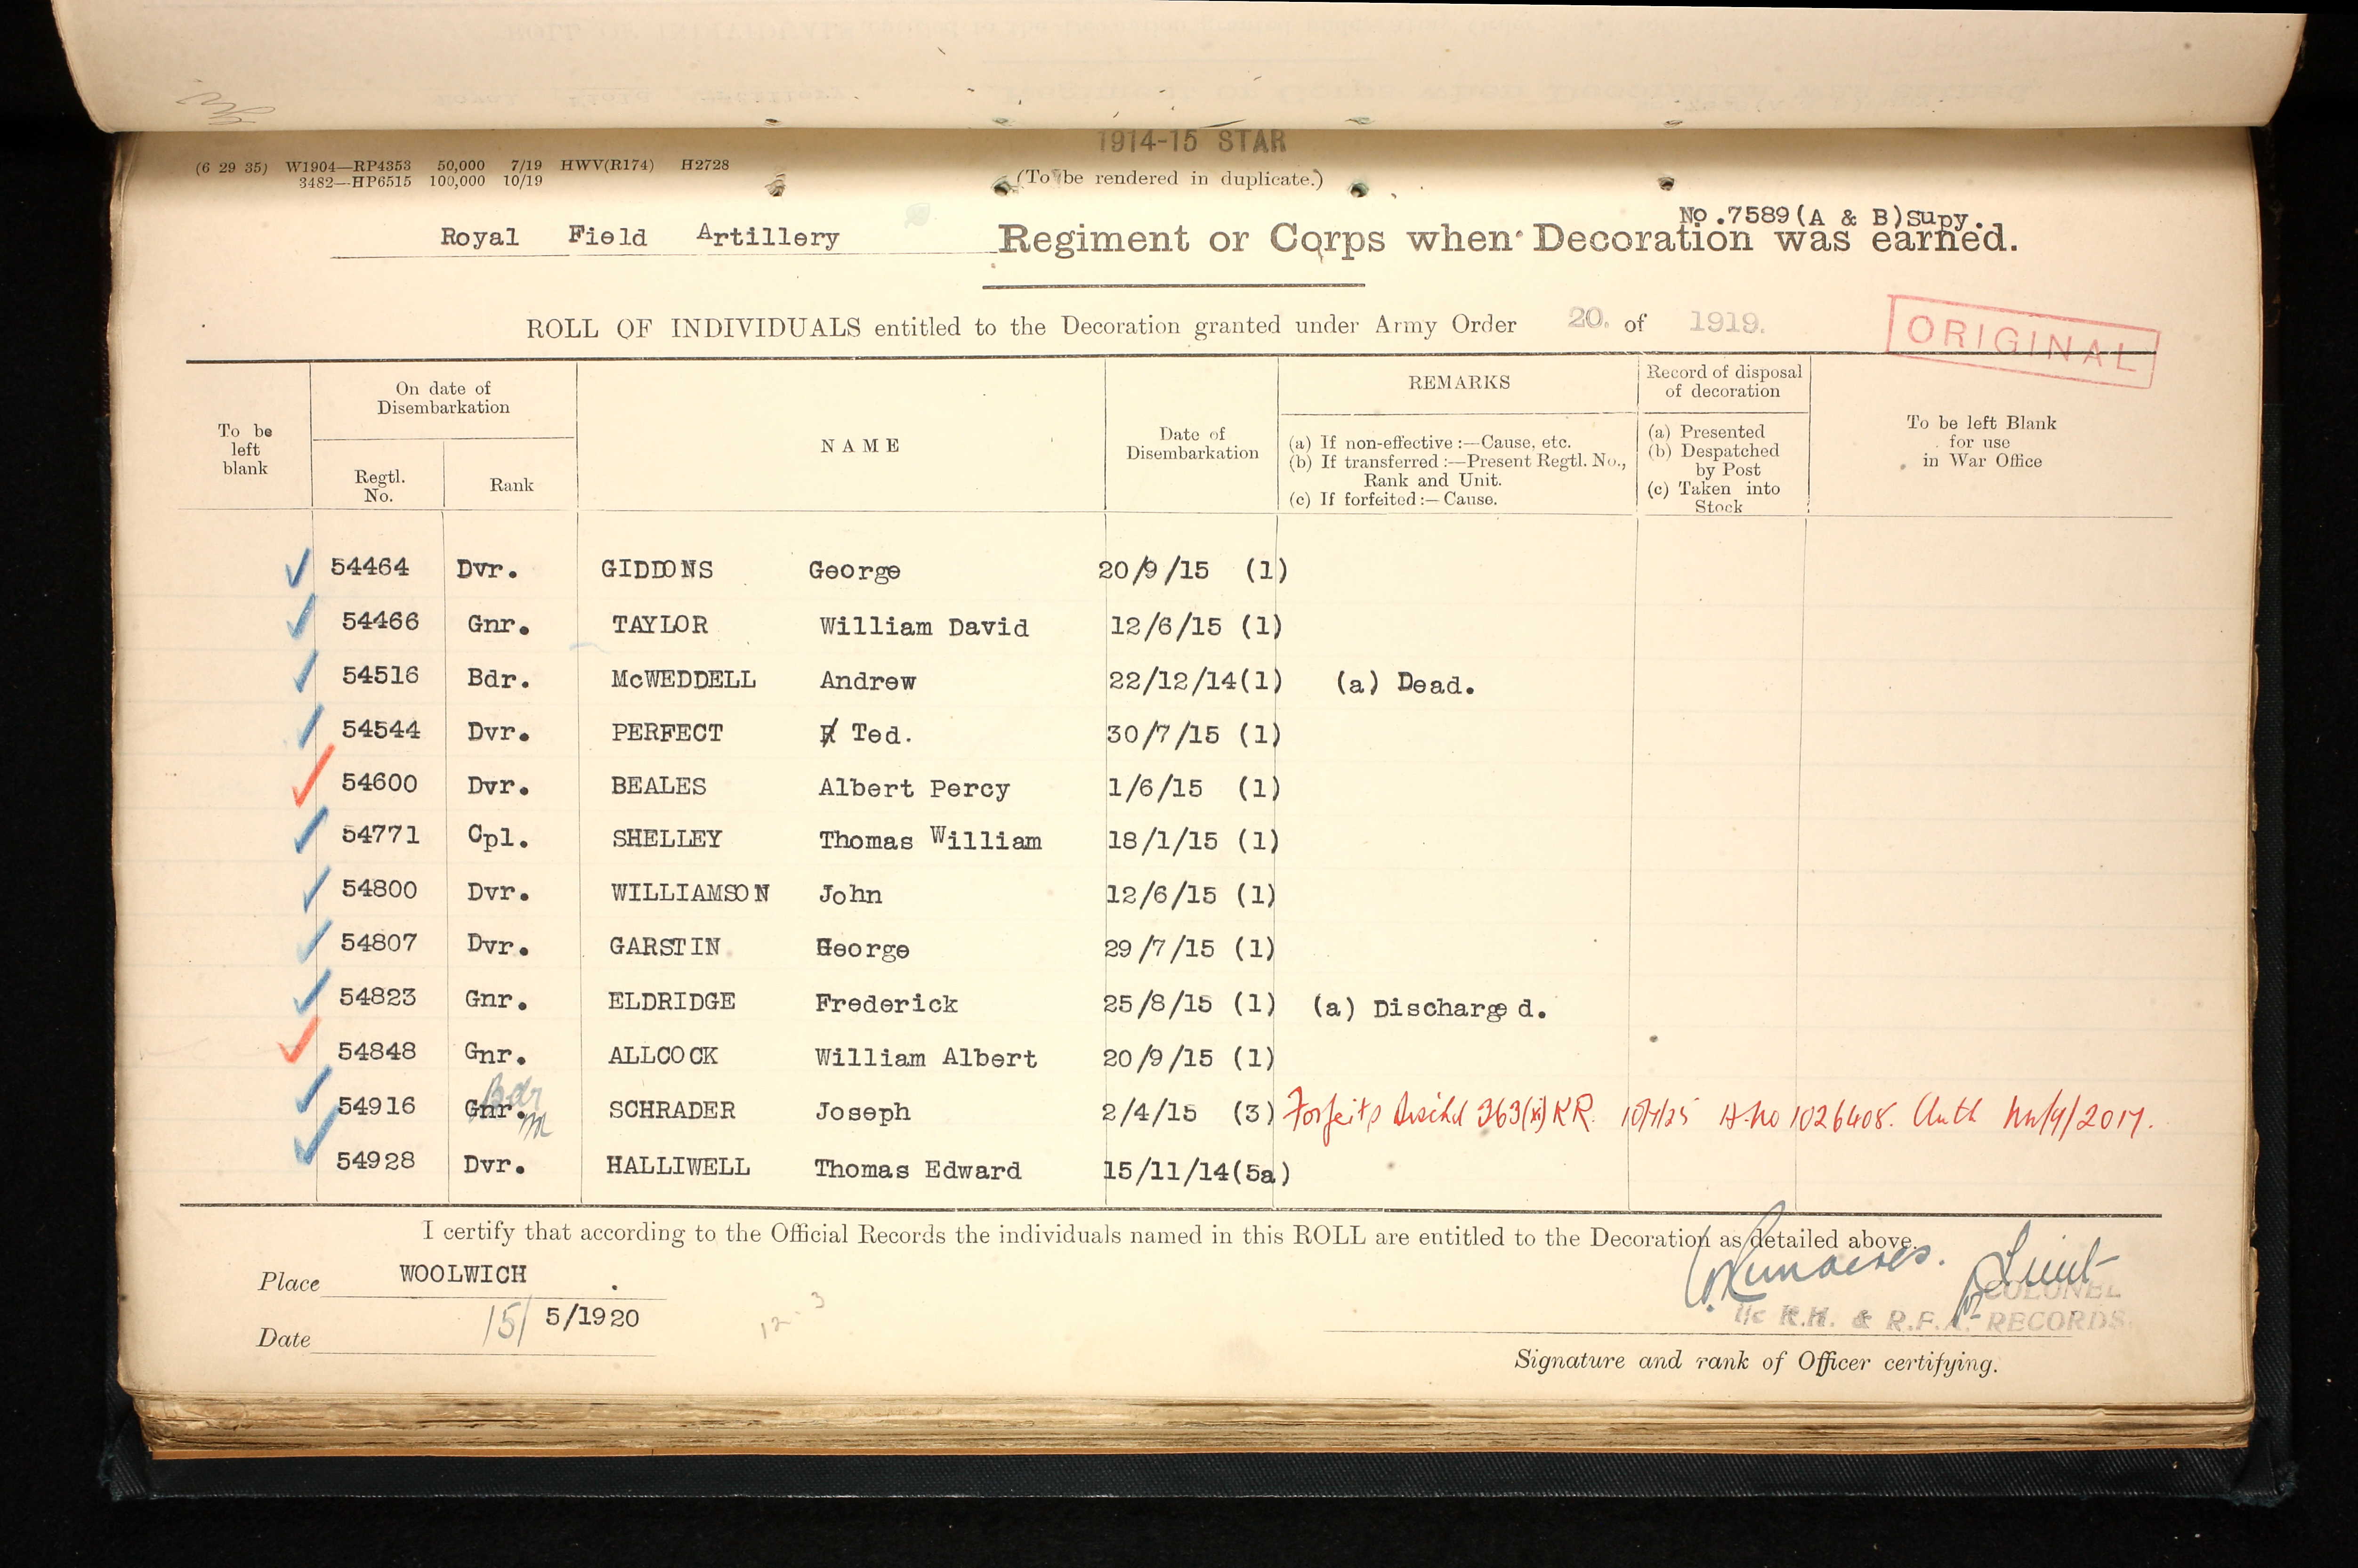 1914-15 STAR
(6 29 35) W1904—RP4353 50,000 7/19 HWV(R174) H2728
3482—HP6515 100,000 10/19
(To be rendered in duplicate.)
No.7589(A & B)Supy.
Royal Field Artillery Regiment or Corps when Decoration was earned.
ROLL OF INDIVIDUALS entitled to the Decoration granted under Army Order 20. of 1919.
ORIGINAL
To be left blank
On date of Disembarkation
Regtl. No.
Rank
NAME
Date of Disembarkation
REMARKS
(a) If non-effective :—Cause, etc.
(b) If transferred :—Present Regtl. No., Rank and Unit.
(c) If forfeited :— Cause.
Record of disposal of decoration
(a) Presented
(b) Despatched by Post
(c) Taken into Stock
To be left Blank for use in War Office
54464 Dvr. GIDDONS George 20/9/15 (1)
54466 Gnr. TAYLOR William David 12/6/15 (1)
54516 Bdr. McWEDDELL Andrew 22/12/14(1) (a) Dead.
54544 Dvr. PERFECT Ted. 30/7/15 (1)
54600 Dvr. BEALES Albert Percy 1/6/15 (1)
54771 Cpl. SHELLEY Thomas William 18/1/15 (1)
54800 Dvr. WILLIAMSON John 12/6/15 (1)
54807 Dvr. GARSTIN George 29/7/15 (1)
54823 Gnr. ELDRIDGE Frederick 25/8/15 (1) (a) Discharged.
54848 Gnr. ALLCOCK William Albert 20/9/15 (1)
Bdr
54916 Gnr. SCHRADER Joseph 2/4/15 (3) Forfeits 363(xi) KR. 1026408. Auth
54928 Dvr. HALLIWELL Thomas Edward 15/11/14(5a)
I certify that according to the Official Records the individuals named in this ROLL are entitled to the Decoration as detailed above.
Place WOOLWICH
Lieut
COLONEL
Date 15/ 5/1920
12-3
I/c R.H. & R.F.A. RECORDS.
Signature and rank of Officer certifying.